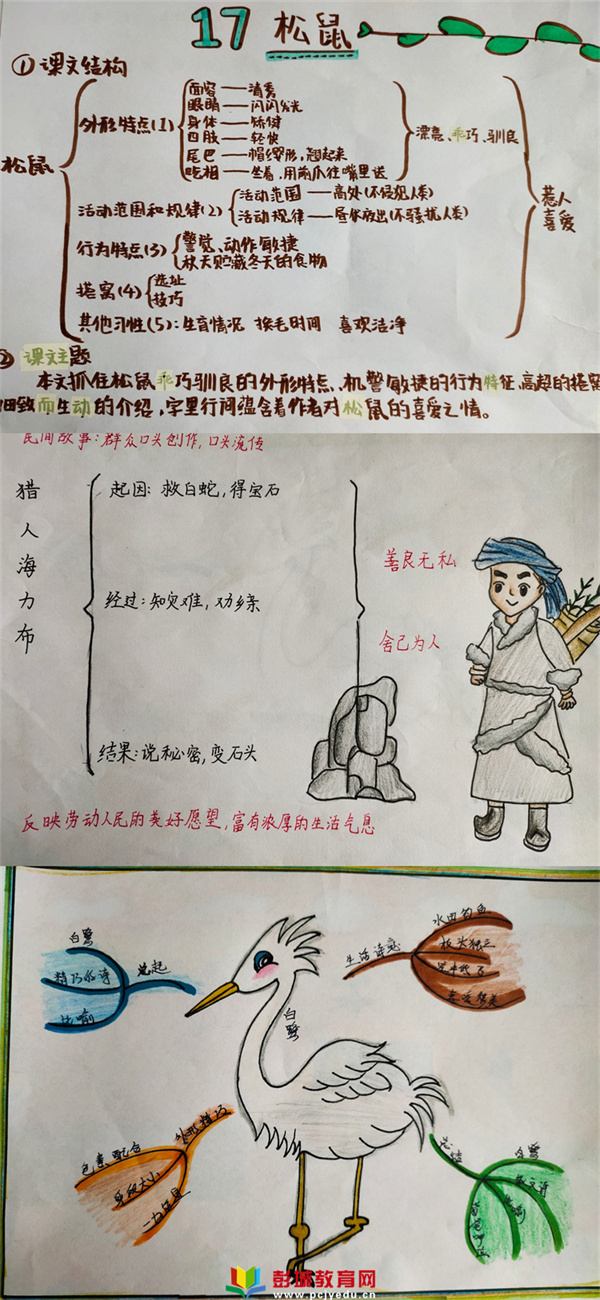 17 松鼠
①课文结构
松鼠
外形特点(1)
面容——清秀
眼睛——闪闪发光
身体——矫健
四肢——轻快
尾巴——帽缨形，翘起来
吃相——坐着，用前爪往嘴里送
漂亮、乖巧、驯良
活动范围和规律(2)
活动范围——高处(不侵犯人类)
活动规律——昼伏夜出(不骚扰人类)
行为特点(3)
警觉、动作敏捷
秋天贮藏冬天的食物
搭窝(4)
选址
技巧
其他习性(5)：生育情况 换毛时间 喜欢洁净
惹人
喜爱
② 课文主题
本文抓住松鼠乖巧驯良的外形特点、机警敏捷的行为特征、高超的搭窝
细致而生动的介绍，字里行间蕴含着作者对松鼠的喜爱之情。
民间故事：群众口头创作，口头流传
猎人海力布
起因：救白蛇，得宝石
经过：知灾难，劝乡亲
结果：说秘密，变石头
善良无私
舍己为人
反映劳动人民的美好愿望，富有浓厚的生活气息
白鹭
精巧的诗
比喻
总起
白鹭
生活诗意
水田钓鱼
外形精巧
色素配合
身段大小
总结
散文诗
彭城教育网
www.pcjyedu.cn